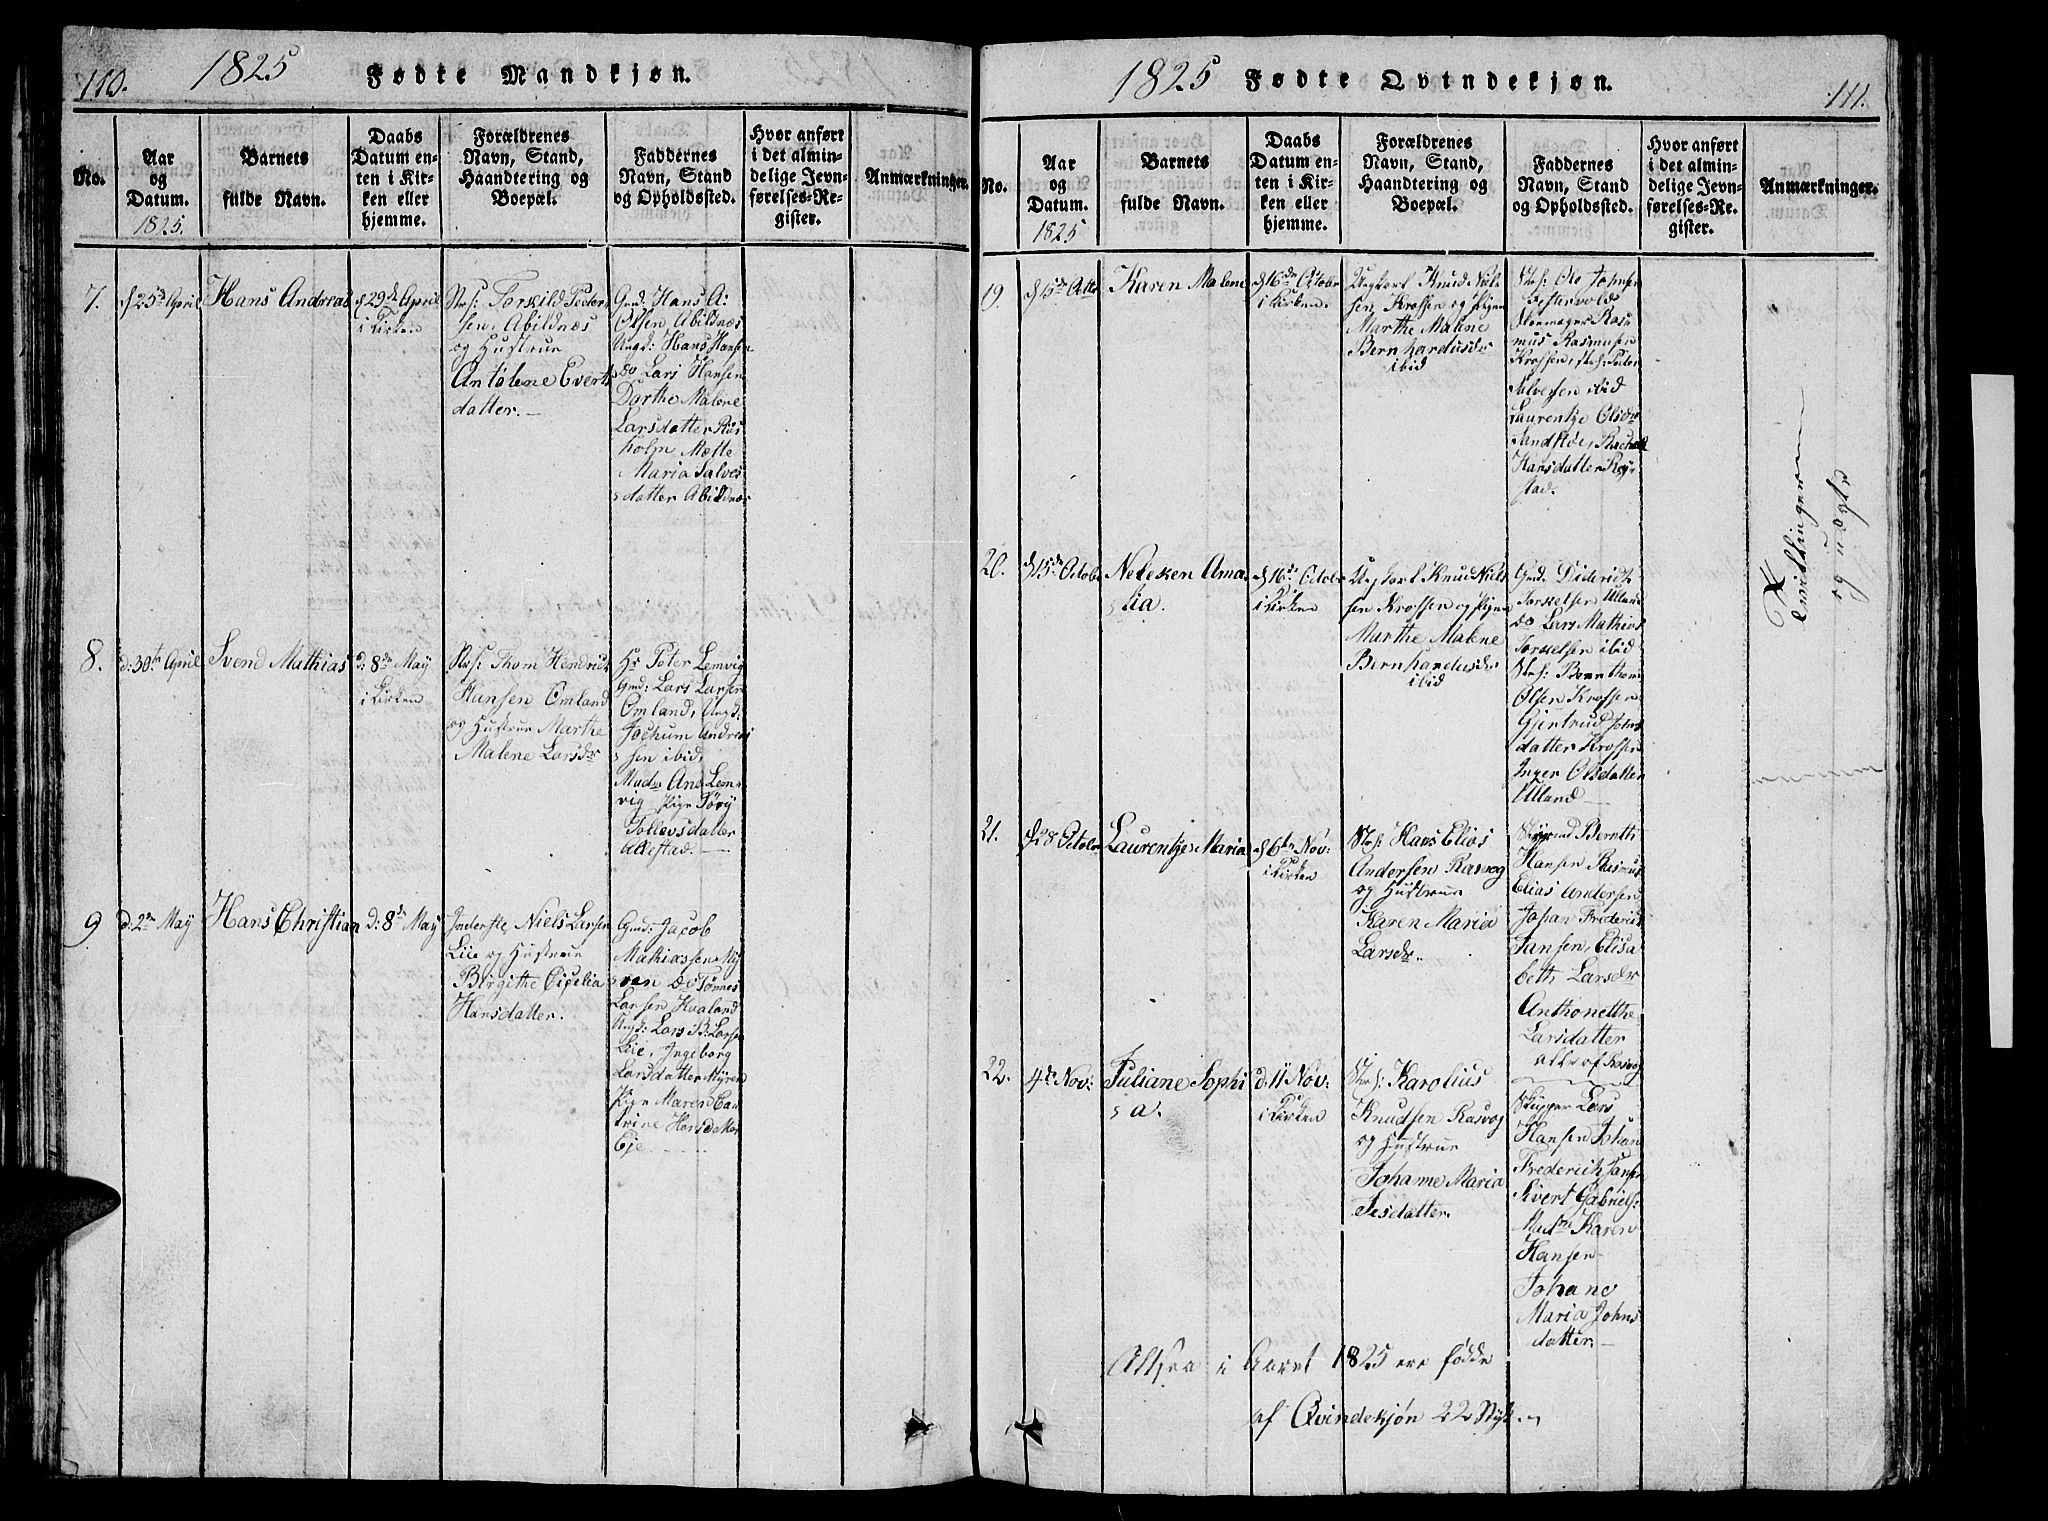 110. 1825 Fødte Mandkjøn.
No.
Aar
og
Datum.
1825.
Barnets
fulde Navn.
Daabs
Datum en-
ten i Kir-
ken eller
hjemme.
Forældrenes
Navn, Stand,
Haandtering og
Boepæl.
Faddernes
Navn, Stand
og Opholdssted.
Hvor anført
i det almin-
delige Jevn-
førelses-Re-
gister.
Anmærkninger.
7.
25d April
Hans Andreas
29de April
i Kirken
Torkild Peder
sen, Abildnæs
og Hustrue
Antølene Everts
datter.
Gmd: Hans A:
Olsen, Abildnæs
Ungd: Hans Hansen
do Lars Hansen
Dorthe Malene
Larsdatter Rus
holm, Mette
Maria Salves
datter Abildnæs
8.
d: 30te April
Svend Mathias
d: 8de May
i Kirken
Thom Hendrich
Hansen Omland
og Hustrue Marthe
Malene Larsdr
Hr Peter Lemvig
Gmd: Lars Larsen
Omland, Ungd:
Jochum Andreas
sen ibid,
Madm Ane Lem
vig Pige
Tollevsdatter
9
d: 2den May
Hans Christian
d: 8de May
Inderste Niels Larsen
Lie og Hustrue
Birgithe Cicelia
Hansdatter.
Gmd: Jacob
Mathiassen My
ren do Tønnes
Larsen Kvaland
Ungd: Lars B. Larsen
Lie, Ingeborg
Larsdatter Myren
Pige Maren Ca
trine Hansdatter
Eje
1825 Fødte Qvindekjøn. 111.
No.
Aar
og
Datum.
1825
Barnets
fulde Navn.
Daabs
Datum en-
ten i Kir-
ken eller
hjemme.
Forældrenes
Navn, Stand,
Haandtering og
Boepæl.
Faddernes
Navn, Stand
og Opholdssted.
Hvor anført
i det almin-
delige Jevn-
førelses-Re-
gister.
Anmærkninger.
19.
15de Octo
Karen Malene
16de October
i Kirken.
Ungkarl Knud Niel
sen Krossen og Pigen
Marthe Malene
Bernhardusdr
ibid
Ole Johnsen
Skomager Rasmus
Rasmusen
Krossen, Peder
Salvesen ibid
Laurentze Olsdr
Sandstøe, Rachel
Hansdatter Rey
stad.
Tvillinger
og uægte
20.
15de Octobr
Neleken Ama
lia.
16de October
i Kirken
Ungkarl Knud Niel
sen Krossen og Pigen
Marthe Malene
Bernhardusdr
ibid
Gmd. Diderich
Torkelsen Ulland
do Lars Mathias
Torkelsen ibid
Bernthon
Olsen Krossen
Gjertrud Johns
datter Krossen
Inger Olsdatter
Ulland
21.
28 Octobr
Laurentze Maria
6te Nov:
i Kirken
Hans Elias
Andersen Rasvog
og Hustrue
Karen Maria
Larsdr.
Berntt
Hansen Rasmus
Elias Andersen
Johan Frederich
Jansen, Elisa
beth Larsdr
Anthonetthe
Larsdatter
alle af Rasvog
22.
4de Nov:
Juliane Sophi
a.
d: 11 Nov:
i Kirken
Karolius
Knudsen Rasvog
og Hustrue
Johanne Maria
Jesdatter.
Skipper Lars
Hansen Johan
Frederich Jansen
Sivert Gabriels:
Karen
Hansen
Johane
Maria Johns
datter.
Altsaa i Aaret 1825 ere fødde
af Qvindekjøn 22 Styk.